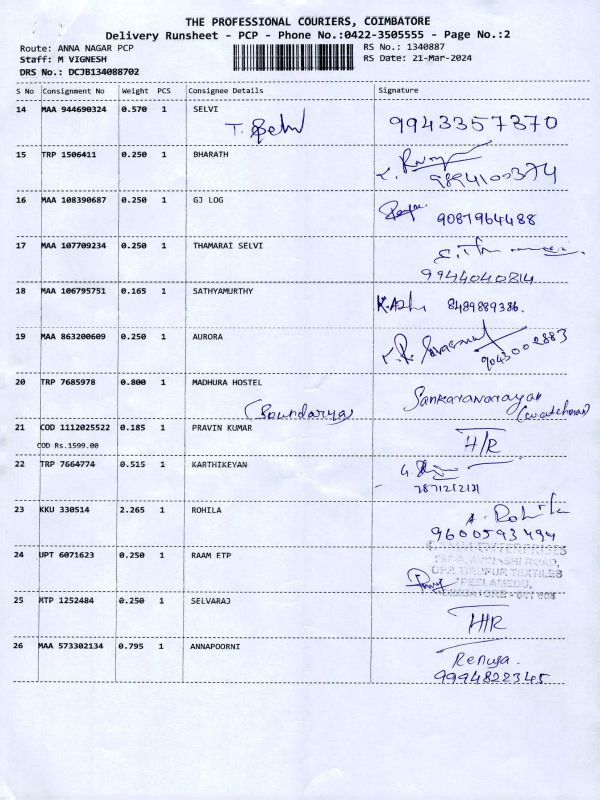 THE PROFESSIONAL COURIERS, COIMBATORE
Delivery Runsheet - PCP - Phone No.:0422-3505555 - Page No.:2
Route: ANNA NAGAR PCP RS No.: 1340887
Staff: M VIGNESH RS Date: 21-Mar-2024
DRS No.: DCJB134088702
S No Consignment No Weight PCS Consignee Details Signature
14 MAA 944690324 0.570 1 SELVI 9943357370
T.
15 TRP 1506411 0.250 1 BHARATH
9894100374
16 MAA 108390687 0.250 1 GJ LOG
9087964488
17 MAA 107709234 0.250 1 THAMARAI SELVI
9944040814
18 MAA 106795751 0.165 1 SATHYAMURTHY
8489889386.
19 MAA 863200609 0.250 1 AURORA
9043002883
20 TRP 7685978 0.800 1 MADHURA HOSTEL Sankaranarayan
(Soundarya) (watchman)
21 COD 1112025522 0.185 1 PRAVIN KUMAR H/R
COD Rs.1599.00
22 TRP 7664774 0.515 1 KARTHIKEYAN
7871212121
23 KKU 330514 2.265 1 ROHILA A. Rohila
9600593494
24 UPT 6071623 0.250 1 RAAM ETP
ENTERPRISES
AVINASHI ROAD,
OPP. TIRUPUR TEXTILES
PEELAMEDU,
COIMBATORE - 641 004
25 MTP 1252484 0.250 1 SELVARAJ H/R
26 MAA 573302134 0.795 1 ANNAPOORNI Renuga.
9994822345